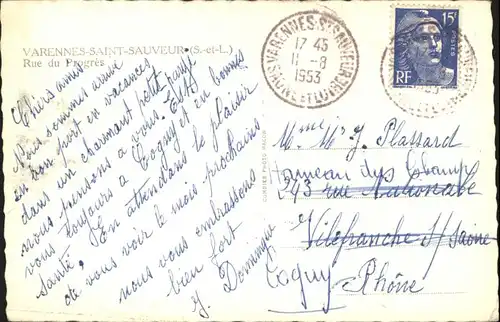 VARENNES-SAINT-SAUVEUR (S.-et-L.)
Rue du Progrès
VARENNES-ST SAUVEUR
17 45
11 -8
1953
SAONE ET LOIRE
15F
POSTES
RF
Chers amis
Nous sommes arrivé
en bon port en vacances
dans un charmant petit pays
nous pensons a vous. Etes
vous toujours a Cogny et en bonnes
santé, En attendant le plaisir
de vous voir le mois prochains
nous vous embrassons
bien fort
J. Dominique
Mme Mr J. Plassard
hameau des
243 rue Nationale
Villefranche s/ Saône
Cogny Rhône